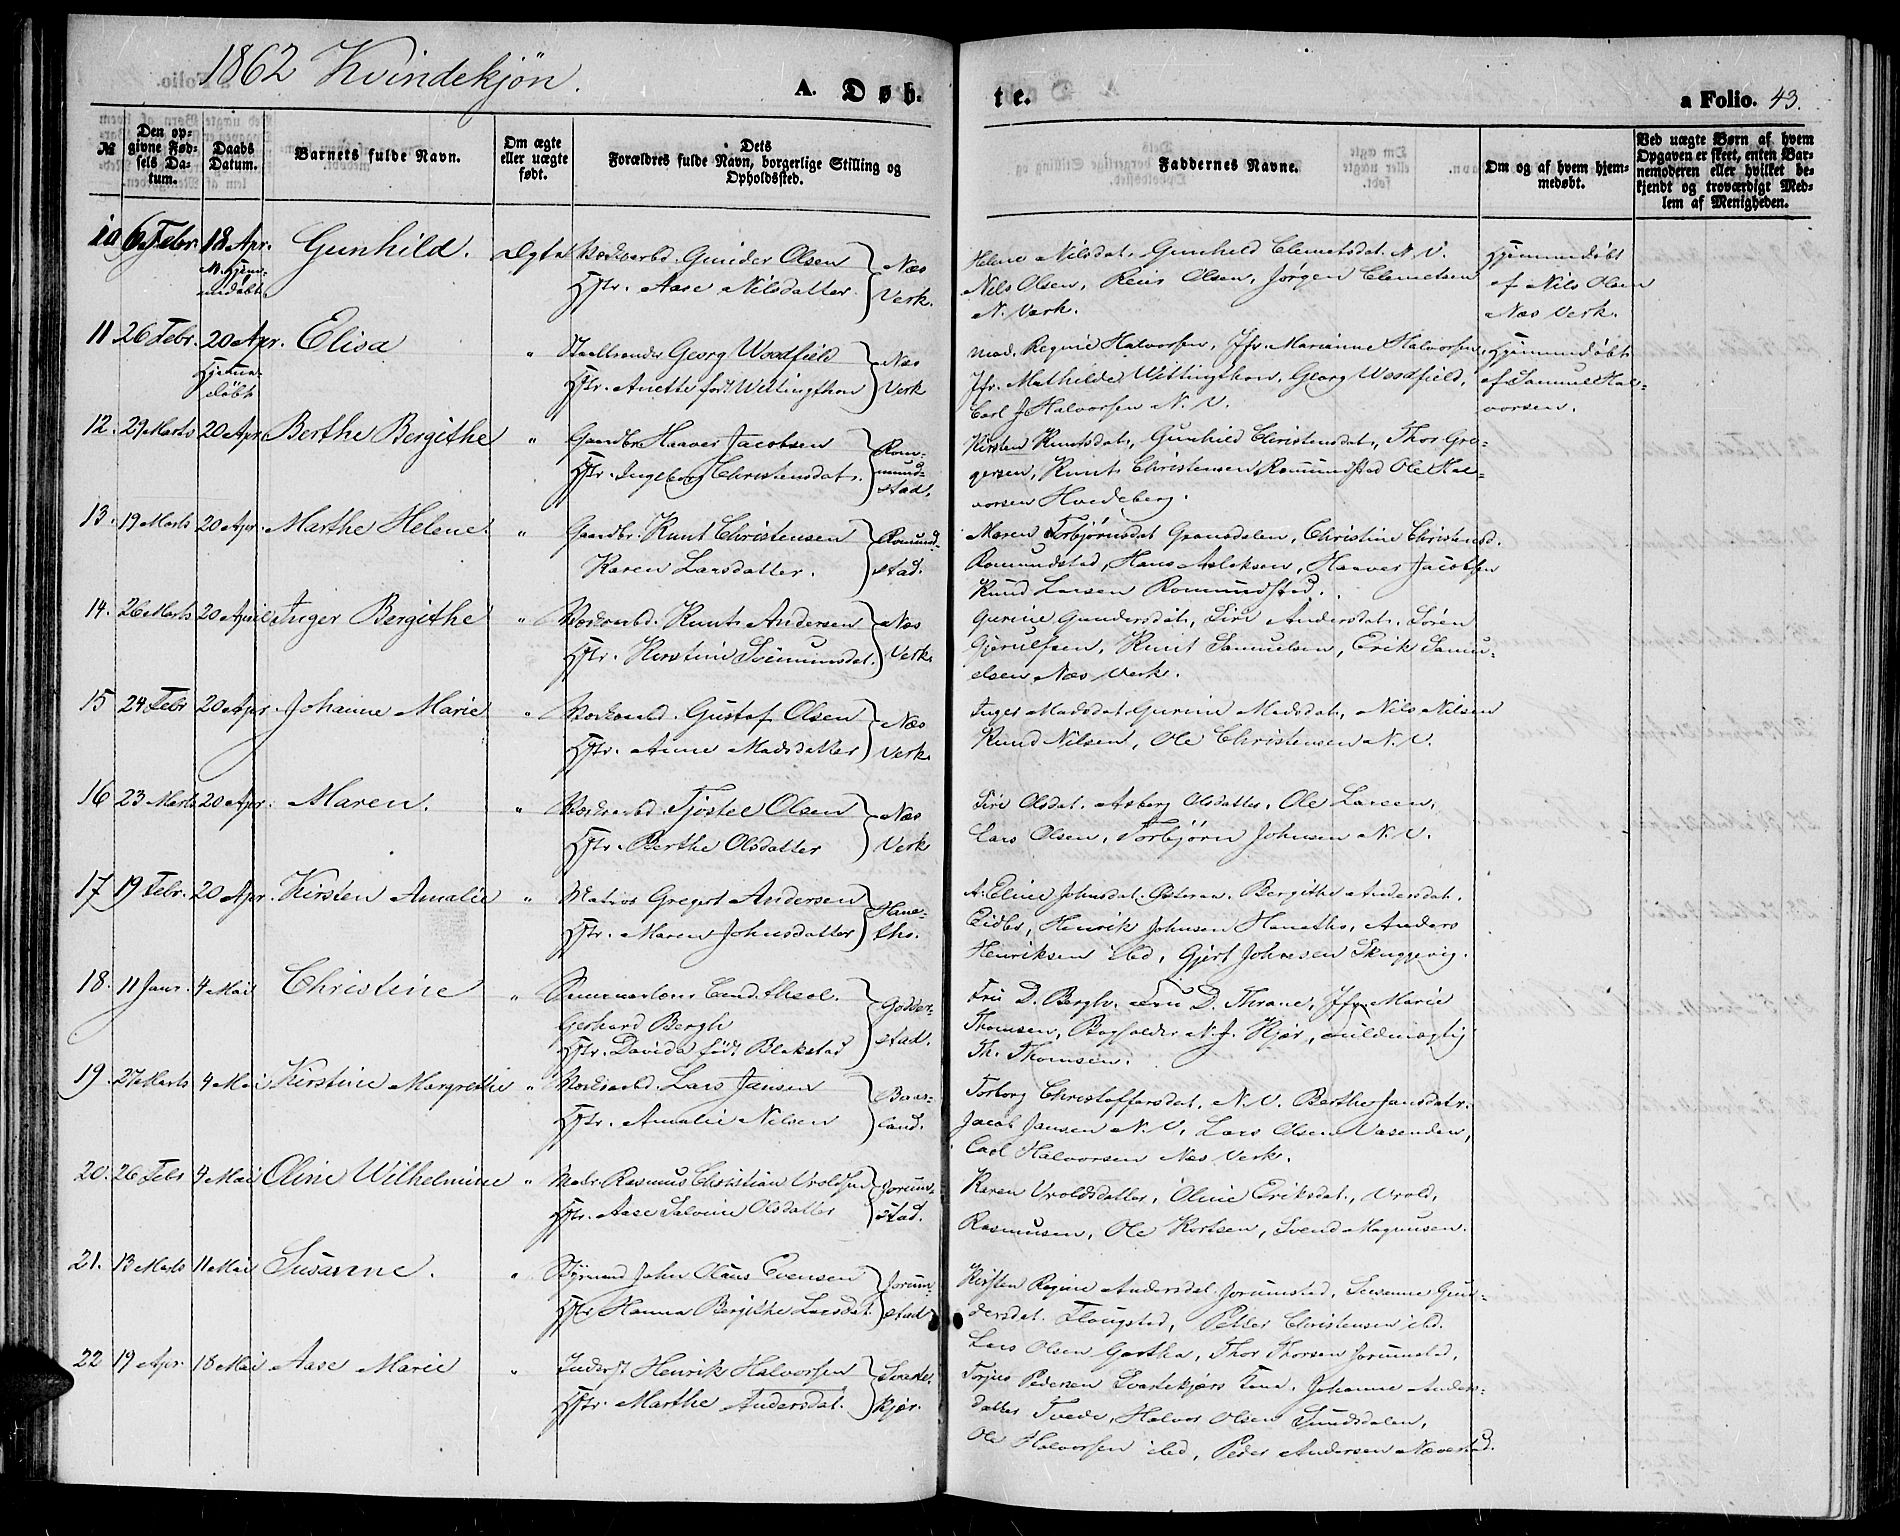 1862 Kvindekjøn.
A. Døb.
te.
a Folio. 43.
№
Den opgivne Fødsels Datum.
Daabs Datum.
Barnets fulde Navn.
Om ægte eller uægte født.
Dets Forældres fulde Navn, borgerlige Stilling og Opholdssted.
Faddernes Navne.
Om og af hvem hjemmedøbt.
Ved uægte Børn af hvem Opgaven er skeet, enten Barnemoderen eller hvilket bekjendt og troværdigt Medlem af Menigheden.
10 6 Febr. 18 Apr. Gunhild. Ægte Værksarbd. Gunder Olsen
Hstr. Aase Nilsdatter. Næs Verk.
Helene Nilsdat. Gunhild Clemetsdat. N. V.
Nils Olsen, Reier Olsen, Jørgen Clemetsen
N. Værk.
Hjemmedøbt
af Nils Olsen
Næs Verk.
11 26 Febr. 20 Apr. Elisa " Georg Woodfield
Hjemmedøbt
Hstr. Anette født Wittingthon Næs Verk
Mad. Regine Halvorsen, Jfr. Marianne Halvorsen,
Jfr. Mathilde Wittingthon, Georg Woodfield,
Carl J Halvorsen N. V.
Hjemmedøbt
af Samuel Halvorsen.
12. 29 Marts 20 Apr Berthe Bergithe " Gaardbr. Haaver Jacobsen
Hstr. Ingeborg Christensdat. Rommundstad.
Kirsten Knutsdat., Gunhild Christensdat., Thor Gregersen,
Knut Christensen Romundstad Ole Halvorsen
Hvedeberg.
13. 19 Marts 20 Apr. Marthe Helene. " Gaardbr. Knut Christensen
Karen Larsdatter. Romundstad.
Maren Torbjørnsdat Gransdalen, Christine Christensd.
Romundstad, Hans Aslaksen, Haaver Jacobsen
Knud Larsen Romundstad.
14. 26 Marts 20 April Inger Bergithe " Værksarbd. Knut Andersen
Hstr. Kirstine Simunsdat. Næs Verk.
Gurine Gundersdat., Siri Andersdat., Søren
Gjerulfsen, Knut Samuelsen, Erik Samuelsen
Næs Verk.
15 24 Febr 20 Apr Johanne Marie " Værksarbd. Gustaf Olsen
Hstr. Anne Madsdatter Næs Verk.
Inger Madsdat. Gurine Madsdat., Nils Nilsen
Knud Nilsen, Ole Christensen N. V.
16 23 Marts 20 Apr. Maren. " Værksarbd. Tjøstel Olsen
Hstr. Berthe Olsdatter Næs Verk
Siri Olsdat. Asberg Olsdatter, Ole Larsen,
Lars Olsen, Torbjørn Johnsen N. V.
17 19 Febr. 20 Apr. Kirsten Amalie " Matros Gregert Andersen
Hstr. Maren Johnsdatter Hanetho.
A. Eline Johnsdat. Østeraa, Bergithe Andersdat.
Eidbo, Henrik Johnsen Hanetho, Anders
Henriksen ibd, Gjert Johnsen Skuggevig.
18. 11 Janr. 4 Mai Christine " Cand. theol.
Gerhard Bergh
Hstr. Davida født Blakstad Goderstad.
Fru D. Bergh, Fru D. Thrane, Jfr Marie
Thomsen, Bogholder N. J. Hjor, Fuldmægtig
Th. Thomsen.
19. 27 Marts 4 Mai Kirstine Margrethe " Værksarbd. Lars Jansen
Hstr. Amalie Nilsen Baasland.
Torborg Christoffersdat. N. V. Berthe Jansdatr.
Jacob Jansen N. V. Lars Olsen Vasenden,
Carl Halvorsen Næs Verk.
20. 26 Febr 4 Mai Oline Wilhelmine " Matr. Rasmus Christian Vroldsen
Hstr. Aase Salvine Olsdatter Jorunstad.
Karen Vroldsdatter, Oline Eriksdat., Vrold,
Rasmussen, Ole Kortsen, Svend Magnusen.
21. 13 Marts 11 Mai Susanne. " Styrmand John Olaus Evensen
Hstr. Hanna Bergithe Larsdat. Jorunstad
Kirsten Regine Andersdat. Jorunstad, Susanne Gundersdat.
Flougstad, Petter Christensen ibd.
Lars Olsen Gartha, Thor Thorsen Jorunstad,
22 19 Apr. 18 Mai Aase Marie " Inderst Henrik Halvorsen
Hstr. Marthe Andersdat. Svartekjær.
Torjus Pedersen Svartekjærs Kone, Johanne Andersdatter
Tvede, Halvor Olsen Sundsdalen,
Ole Halvorsen ibd, Peder Andersen Næverstad.